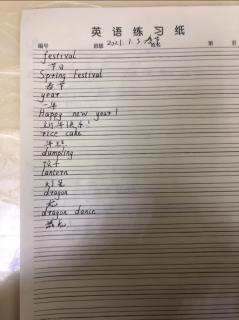 英语练习纸
编号 班级 2021.1.3 姓名 第 页
festival
节日
Spring Festival
春节
year
一年
Happy new year!
新年快乐!
rice cake
年糕
dumpling
饺子
lantern
灯笼
dragon
龙
dragon dance
舞龙